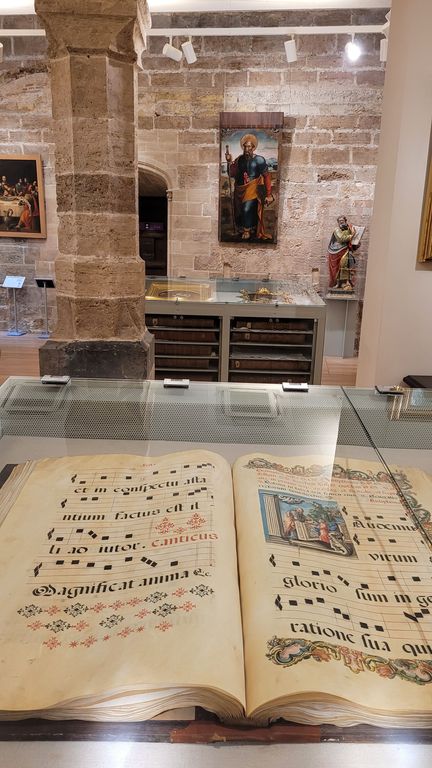 et in conspectu asta
ntium factus est il
li ad iutor. canticus
Magnificat anima &c
virum
glorio sum in ge
ratione sua qui